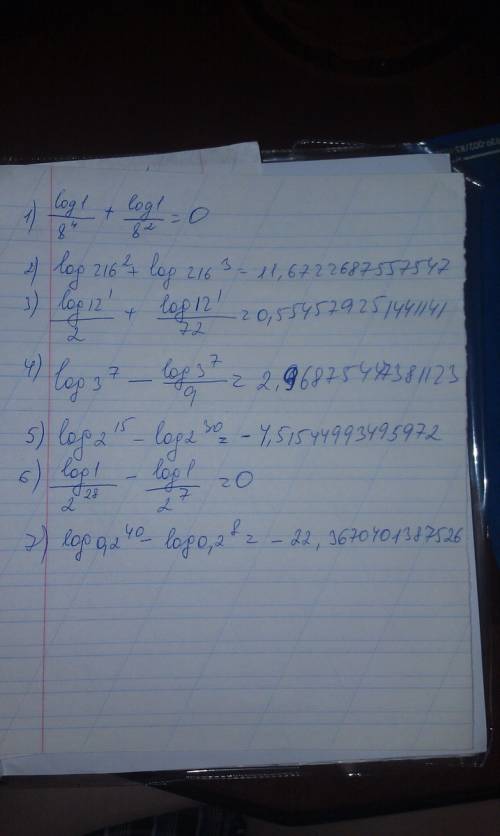 1) log1/8⁴ + log1/8² = 0
2) log216² + log216³ = 11,6722687557547
3) log12¹/2 + log12¹/72 = 0,554579251441141
4) log3⁷ - log3⁷/9 = 2,96875447381123
5) log2¹⁵ - log2³⁰ = -4,51544993495972
6) log1/2²⁸ - log1/2⁷ = 0
7) log0,2⁴⁰ - log0,2⁸ = -22,3670401387526